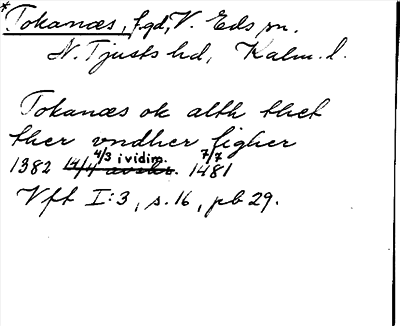 *Tokanæs, fgd, V. Eds sn.
N. Tjusts hd, Kalm. l.
Tokanæs ok alth thet
ther vndher ligher
4/3 i vidim. 7/7
1382 14/4 avskr. 1481
Vft I:3, s. 16, pb 29.